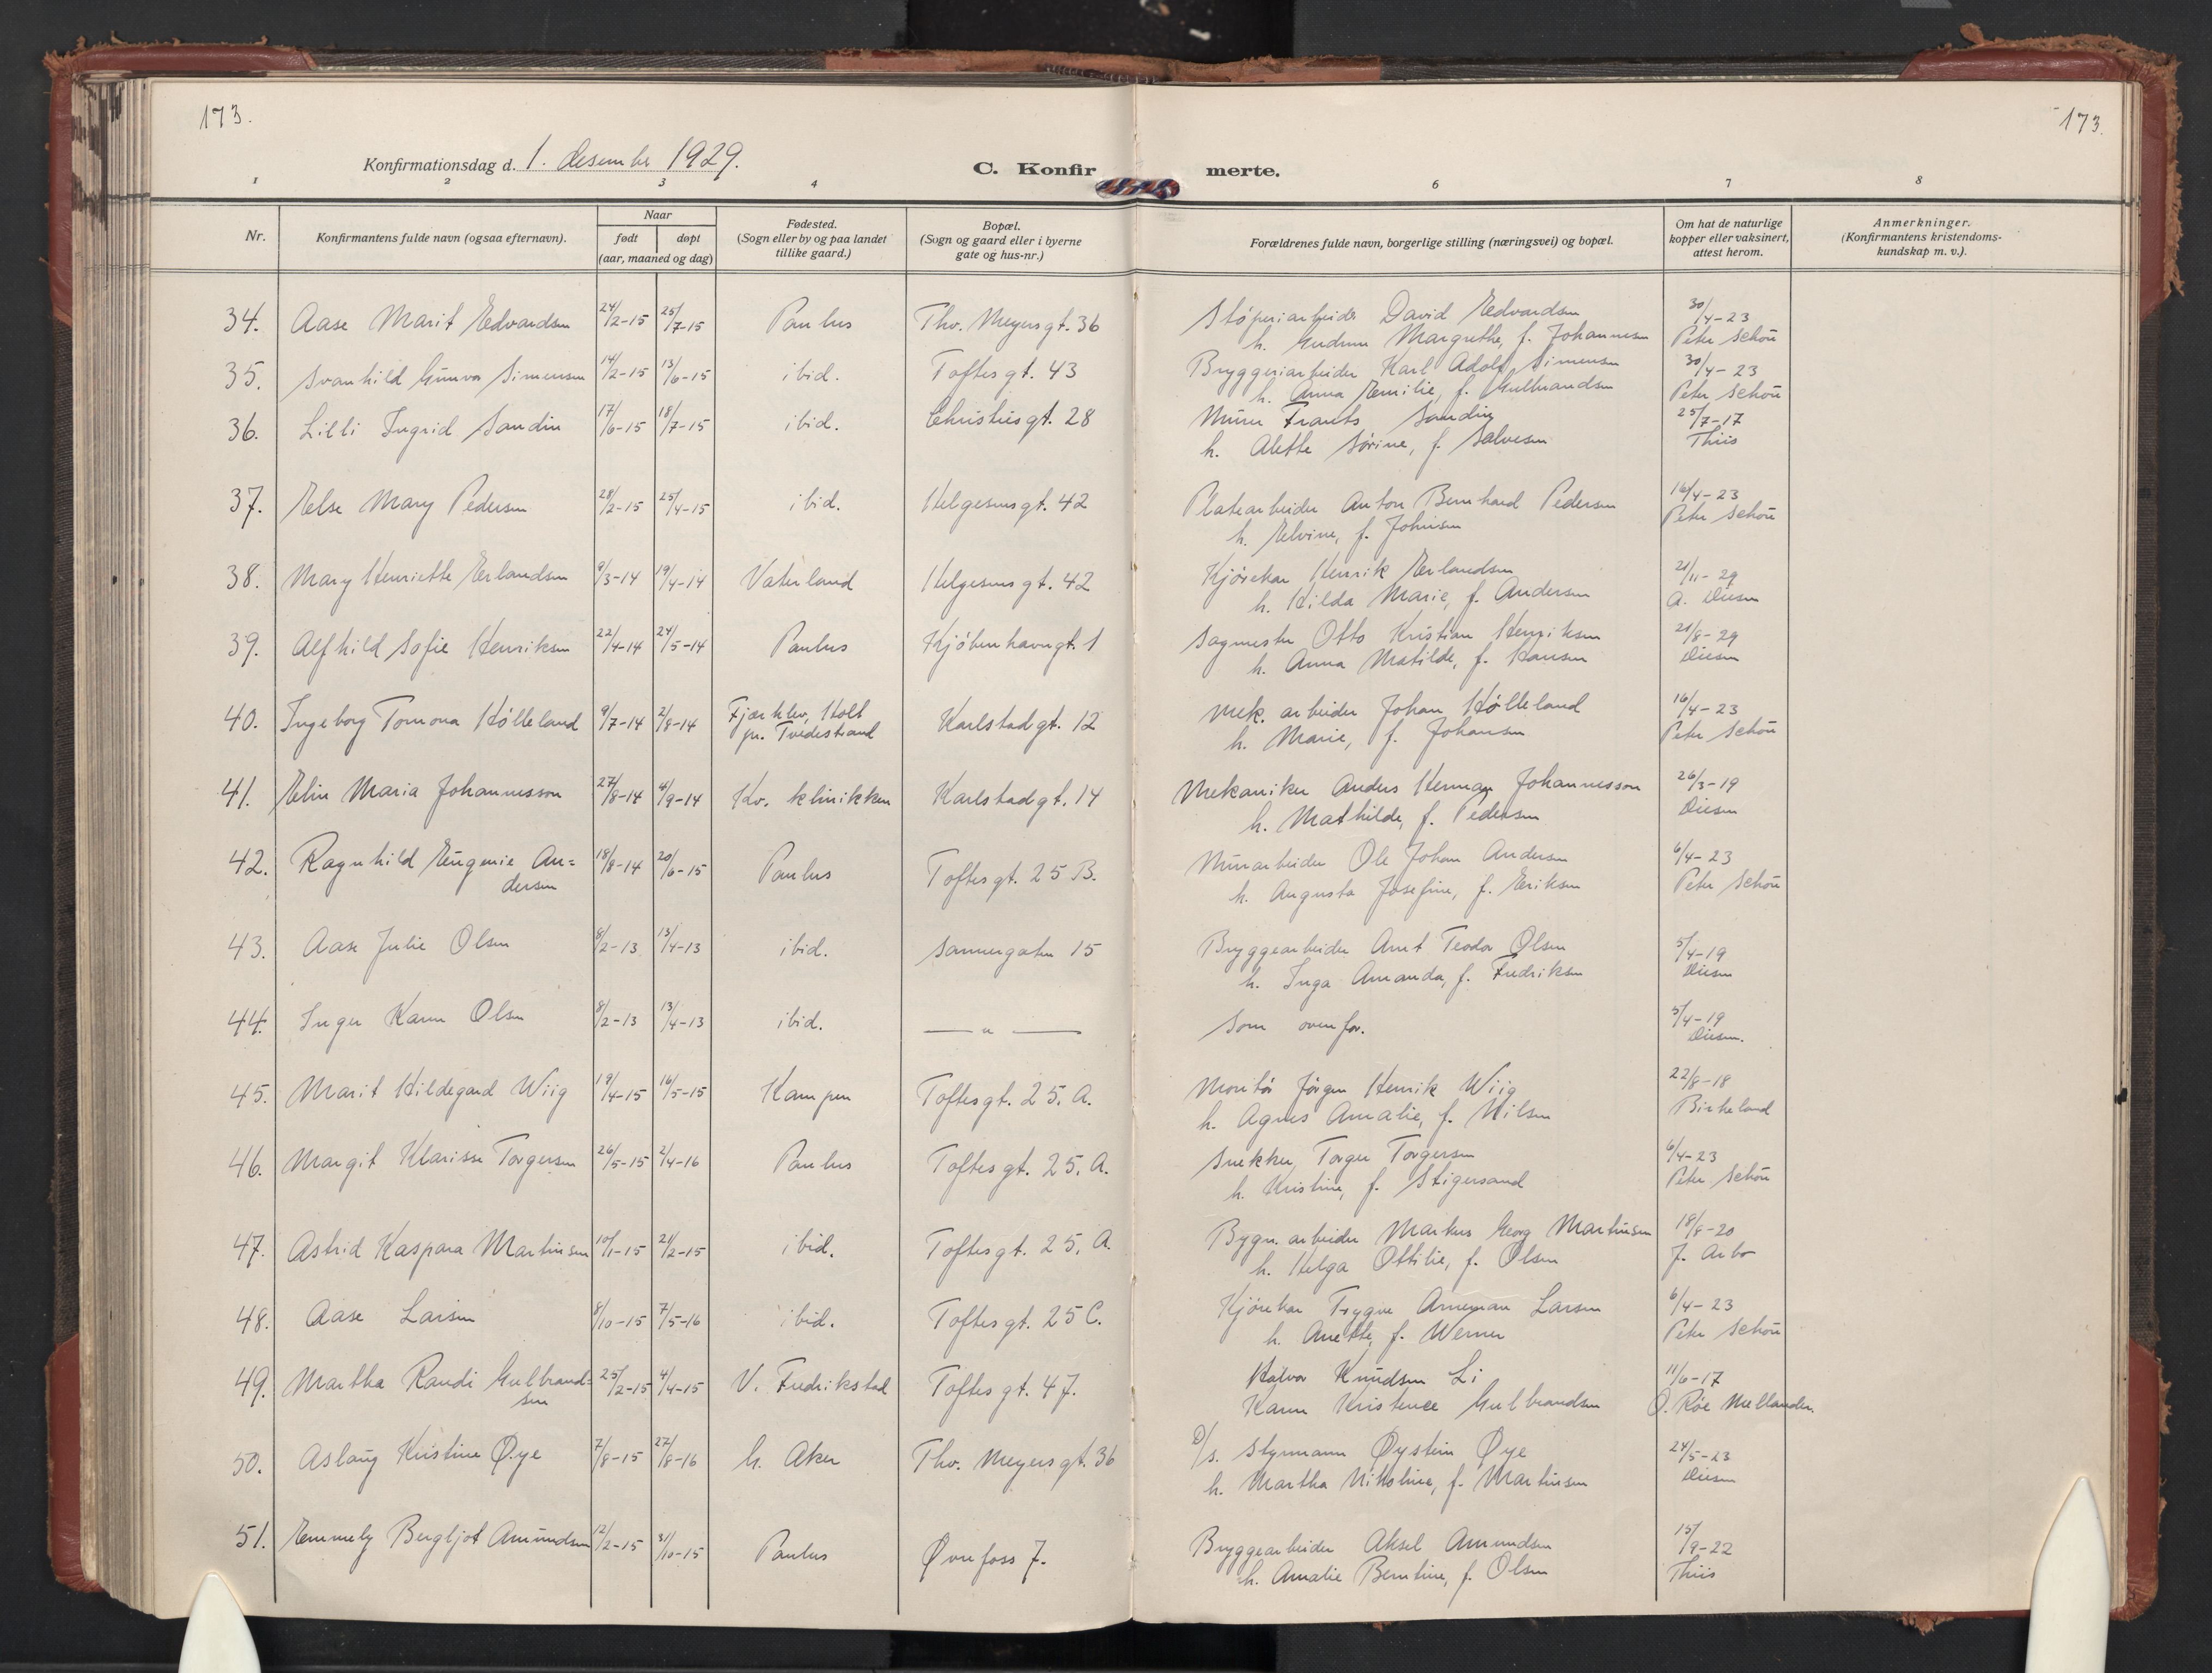 173.
173.
Konfirmationsdag d. 1. desember 1929.
C. Konfir merte.
1 2 3 4 6 7 8
Nr.
Konfirmantens fulde navn (ogsaa efternavn).
Naar
født døpt
(aar, maaned og dag)
Fødested.
(Sogn eller by og paa landet
tillike gaard.)
Bopæl.
(Sogn og gaard eller i byerne
gate og hus-nr.)
Forældrenes fulde navn, borgerlige stilling (næringsvei) og bopæl.
Om hat de naturlige
kopper eller vaksinert,
attest herom.
Anmerkninger.
(Konfirmantens kristendoms-
kundskap m. v.).
34. Aase Marit Edvardsen 24/2-15 25/7-15 Paulus Thv. Meyersgt. 36 Støperiarbeider David Edvardsen 30/4-23
h. Gudrun Margrethe, f. Johannesen Peter Schøn
35. Svanhild Gunvor Simensen 14/2-15 13/6-15 ibid. Toftesgt. 43 Bryggeriarbeider Karl Adolf Simensen 30/4-23
h. Anna Emilie, f. Gulbrandsen Peter Schøn
36. Lilli Ingrid Sandin 17/6-15 18/7-15 ibid. Christiesgt. 28 Murer Frants Sandin 25/7-17
h. Alette Sørine, f. Salvesen Thiis
37. Else Mary Pedersen 28/2-15 25/4-15 ibid. Helgesensgt. 42 Platearbeider Anton Bernhard Pedersen 16/4-23
h. Elvine, f. Johnsen Peter Schøn
38. Mary Henriette Erlandsen 9/3-14 19/4-14 Vaterland Helgesensgt. 42 Kjørekar Henrik Erlandsen 21/11-29
h. Hilda Marie, f. Andersen A. Diesen
39. Alfhild Sofie Henriksen 22/4-14 24/5-14 Paulus Kjøbenhavngt. 1 Sagmester Otto Kristian Henriksen 21/8-29
h. Anna Matilde, f. Hansen Diesen
40. Ingeborg Tomona Hölleland 9/7-14 2/8-14 Fjærklev, Holt Karlstadgt. 12 Mek. arbeider Johan Hölleland 16/4-23
pr. Tvedestrand h. Marie, f. Johansen Peter Schøn
41. Elin Maria Johannesson 27/8-14 4/9-14 Kv. klinikken Karlstadgt. 14 Mekaniker Anders Herman Johannesson 26/3-19
h. Mathilde, f. Pedersen Diesen
42. Ragnhild Eugenie An= 18/8-14 20/6-15 Paulus Toftesgt. 25 B. Murarbeider Ole Johan Andersen 6/4-23
dersen h. Augusta Josefine, f. Eriksen Peter Schøn
43. Aase Julie Olsen 8/2-13 13/4-13 ibid. Sannergaten 15 Bryggearbeider Arnt Teodor Olsen 5/4-19
h. Inga Amanda, f. Fredriksen Diesen
44. Inger Karen Olsen 8/2-13 13/4-13 ibid. — " — Som ovenfor. 5/4-19
Diesen.
45. Marit Hildegard Wiig 19/4-15 16/5-15 Kampen Toftesgt. 25. A. Montør Jørgen Henrik Wiig 22/8-18
h. Agnes Amalie, f. Nilsen Birkeland
46. Margit Klarisse Torgersen 26/5-15 2/4-16 Paulus Toftesgt. 25. A. Snekker Torger Torgersen 6/4-23
h. Kristine, f. Stigersand Peter Schøn
47. Astrid Kaspara Martinsen 10/1-15 21/2-15 ibid. Toftesgt. 25. A. Bygn. arbeider Markus Georg Martinsen 18/8-20
h. Helga Ottilie, f. Olsen J. Arbo
48. Aase Larsen 8/10-15 7/5-16 ibid. Toftesgt. 25 C. Kjørekar Trygve Larsen 6/4-23
h. Anette, f. Werner Peter Schøn
49. Martha Randi Gulbrand= 25/2-15 4/4-15 V. Fredrikstad Toftesgt. 47. Halvor Knudsen Li 11/6-17
sen Karen Kristence Gulbrandsen O. Röe Mellander.
50. Aslaug Kristine Øye 7/8-15 27/8-16 h. Aker Thv. Meyersgt. 36 D/s. Styrmann Øystein Øye 24/5-23
h. Martha Nikoline, f. Martinsen Diesen
51. Emmely Bergljot Amundsen 12/2-15 31/10-15 Paulus Øvrefoss 7. Bryggearbeider Aksel Amundsen 15/9-22
h. Amalie Berntine, f. Olsen Thiis